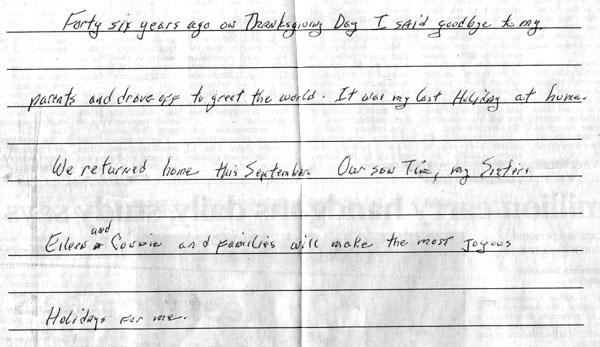 Forty six years ago on Thanksgiving Day I said goodbye to my
parents and drove off to great the world. It was my last Holiday at home.
We returned home this September. Our son Tim, my Sisters
and
Eileen & Connie and families will make the most Joyous
Holidays for me.